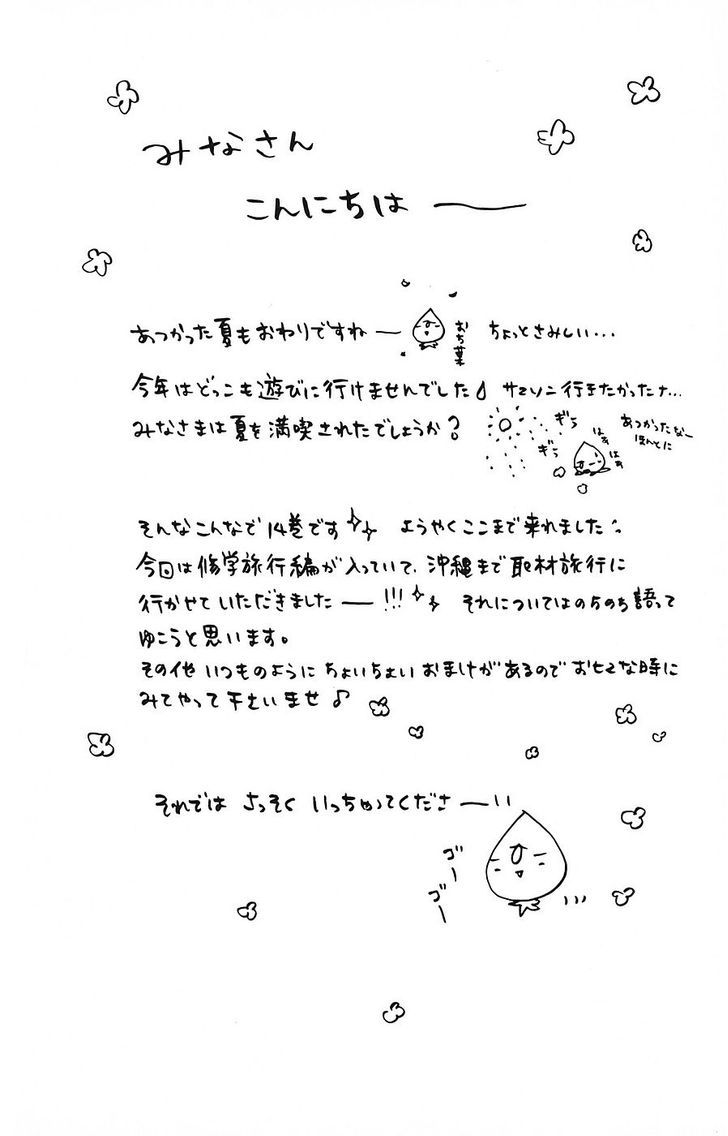 みなさん
こんにちは ――
あつかった夏もおわりですね― おち葉 ちょっとさみしい…
今年はどっこも遊びに行けませんでした サマソニ行きたかったナ…
みなさまは夏を満喫されたでしょうか?
ぎら ぎら はぁ はぁ あつかったなー ほんとに
そんなこんなで14巻です ようやくここまで来れました
今回は修学旅行編が入っていて、沖縄まで取材旅行に
行かせていただきました―!!! それについてはのちのち語って
ゆこうと思います。
その他 いつものように ちょいちょい おまけが あるので おヒマな時に
みてやって下さいませ♪
それでは さっそく いっちゃってくださ―い
ゴー
ゴー